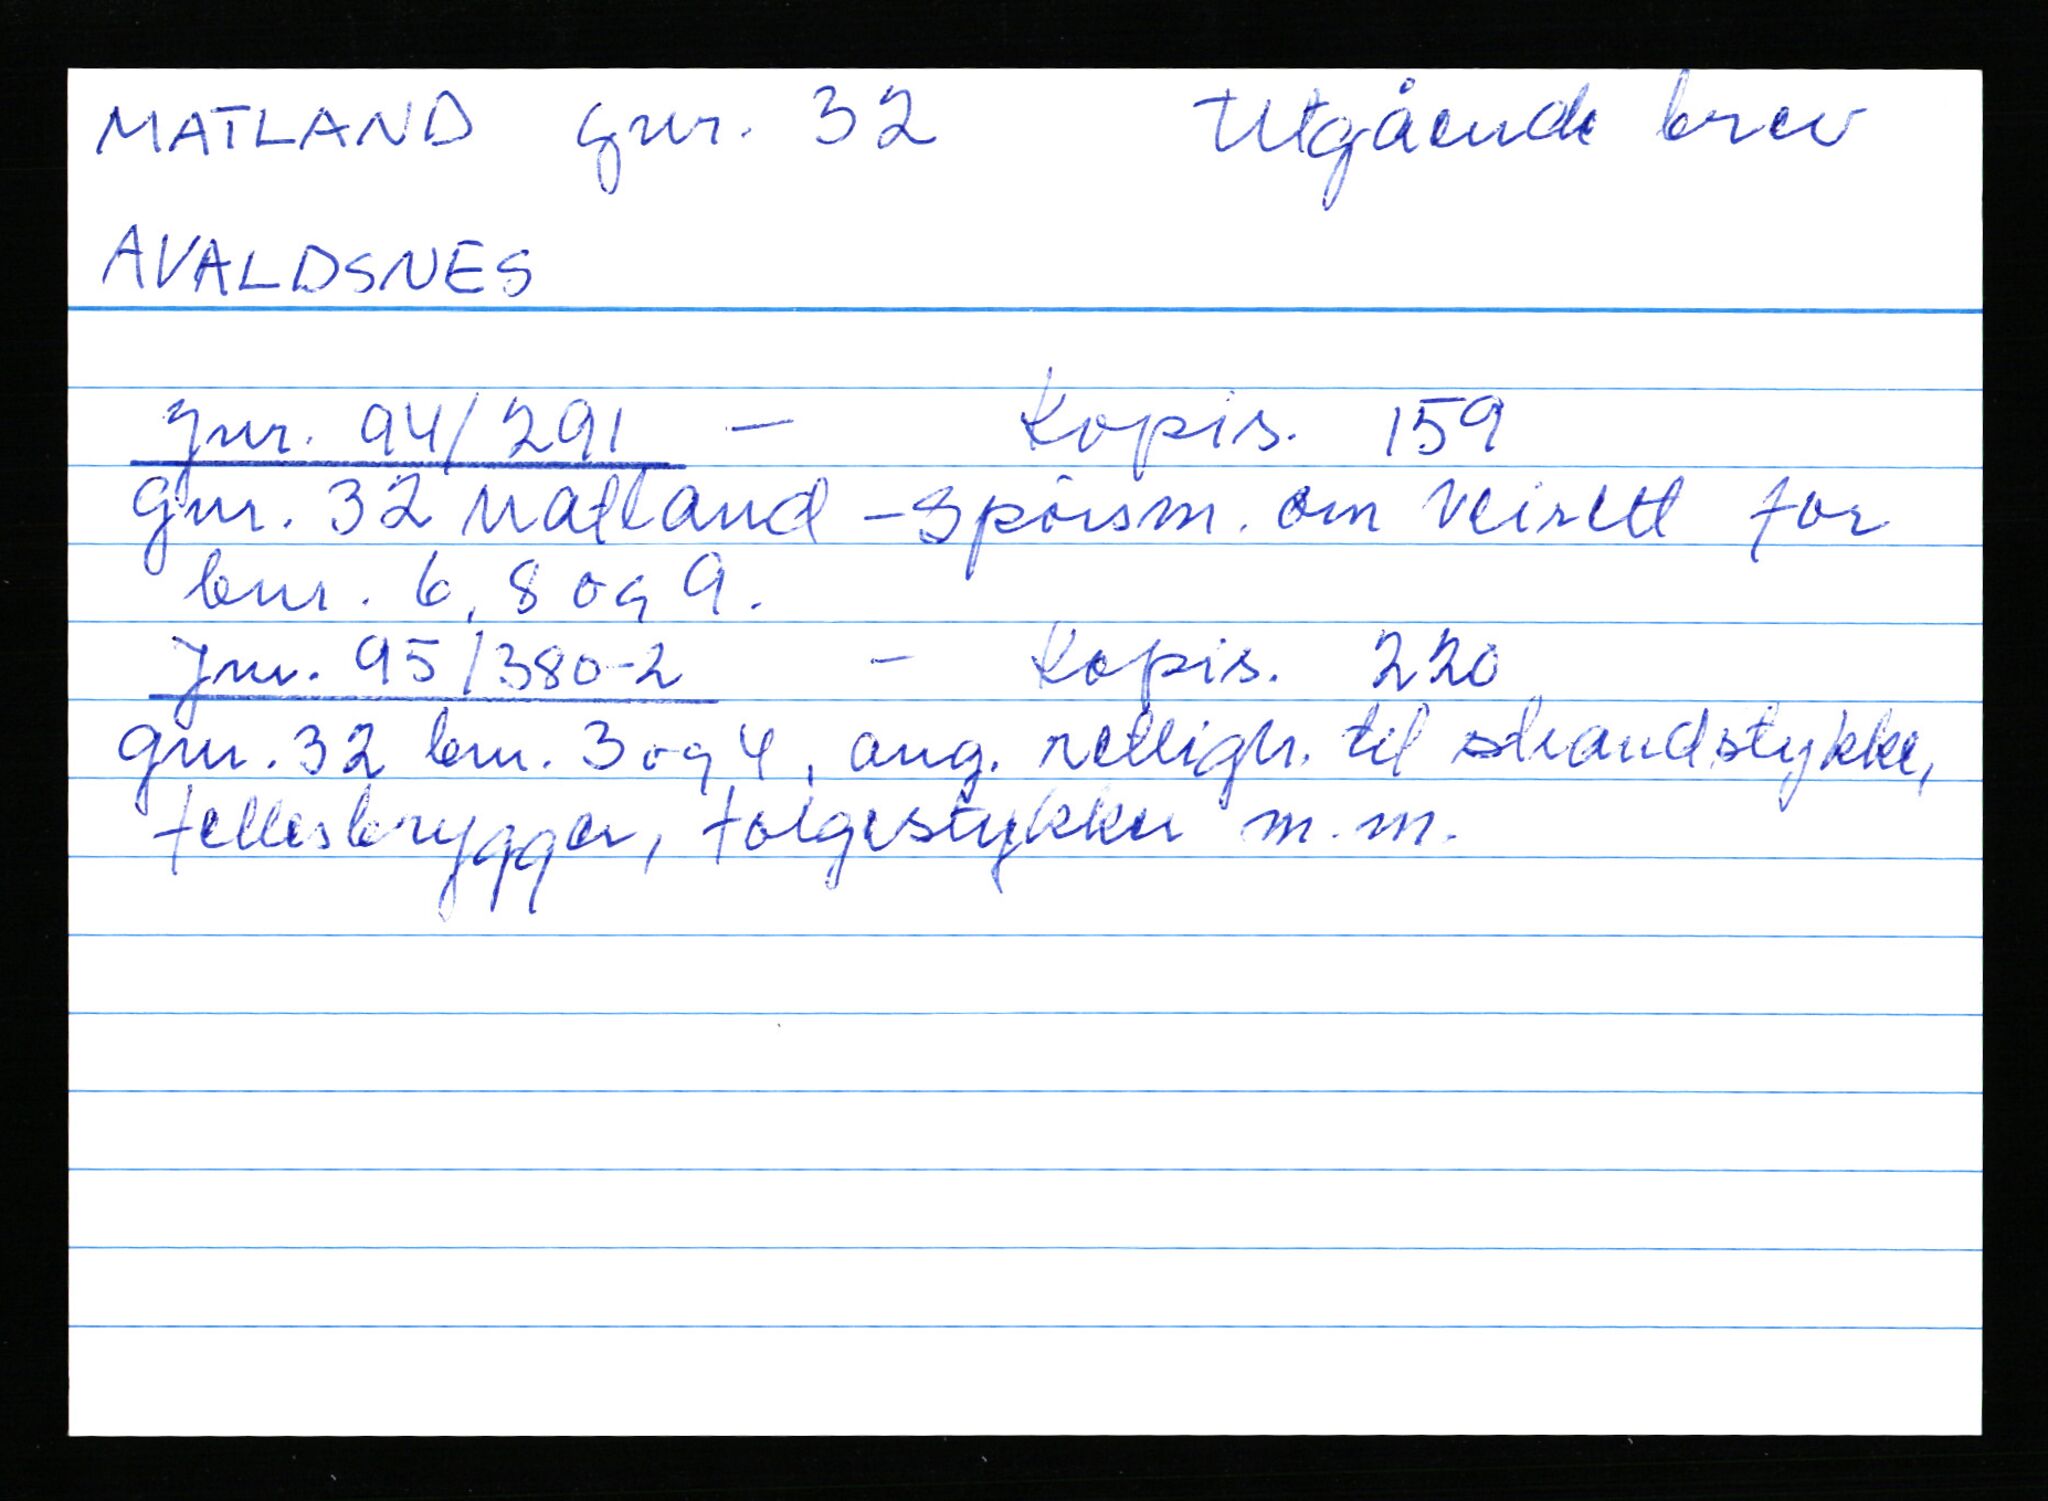 MATLAND gnr. 32 Utgående brev
AVALDSNES
Jnr. 94/291 — Kopis. 159
Gnr. 32 Matland - Spörsm. om veirett for
bnr. 6, 8 og 9.
Jnr. 95/380-2 - Kopis. 220
gnr. 32 bnr. 3 og 4, ang. rettigh. til strandstykke,
fellesbrygger, følgestykker m.m.